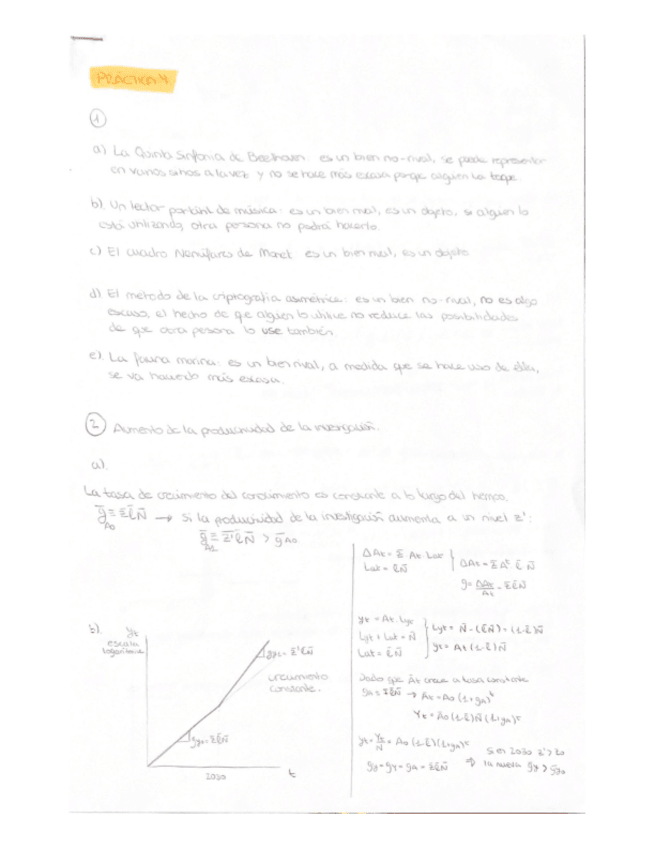 PRÁCTICA 4
1
a) La Quinta Sinfonía de Beethoven: es un bien no-rival, se puede representar
en varios sitios a la vez y no se hace más escasa porque alguien la toque.
b). Un lector portátil de música: es un bien rival, es un objeto, si alguien lo
está utilizando, otra persona no podrá hacerlo.
c) El cuadro Nenúfares de Monet: es un bien rival, es un objeto
d) El método de la criptografía asimétrica: es un bien no-rival, no es algo
escaso, el hecho de que alguien lo utilice no reduce las posibilidades
de que otra persona lo use también.
e). La fauna marina: es un bien rival, a medida que se hace uso de ella,
se va haciendo más escasa.
2 Aumento de la productividad de la investigación.
a).
La tasa de crecimiento del conocimiento es constante a lo largo del tiempo.
ḡA0 = z̄ℓ̄N̄ → Si la productividad de la investigación aumenta a un nivel z':
ḡA1 = z̄'ℓ̄N̄ > ḡA0
b).
yt
escala
logarítmica
gy1 = z̄'ℓ̄N̄
crecimiento
constante.
gy0 = z̄ℓ̄N̄
2030
t
ΔAt = z̄ At Lat
Lat = ℓ̄N̄
g = ΔAt/At = z̄ℓ̄N̄
Yt = At Lyt
Lyt + Lat = N̄
Lat = ℓ̄N̄
Lyt = N̄ - (ℓ̄N̄) = (1-ℓ̄)N̄
Yt = At (1-ℓ̄)N̄
Dado que At crece a tasa constante
gA = z̄ℓ̄N̄ → At = A0 (1+gA)^t
Yt = A0 (1-ℓ̄)N̄ (1+gA)^t
yt = Yt/N̄ = A0 (1-ℓ̄)(1+gA)^t
gy = gY = gA = z̄ℓ̄N̄
Si en 2030 z' > z0
⇒ la nueva gy > gy0